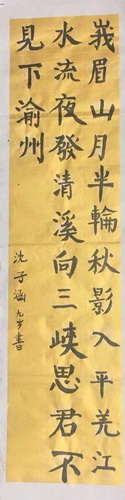 峩眉山月半輪秋影入平羌江
水流夜發清溪向三峡思君不
見下渝州
沈子涵九岁書